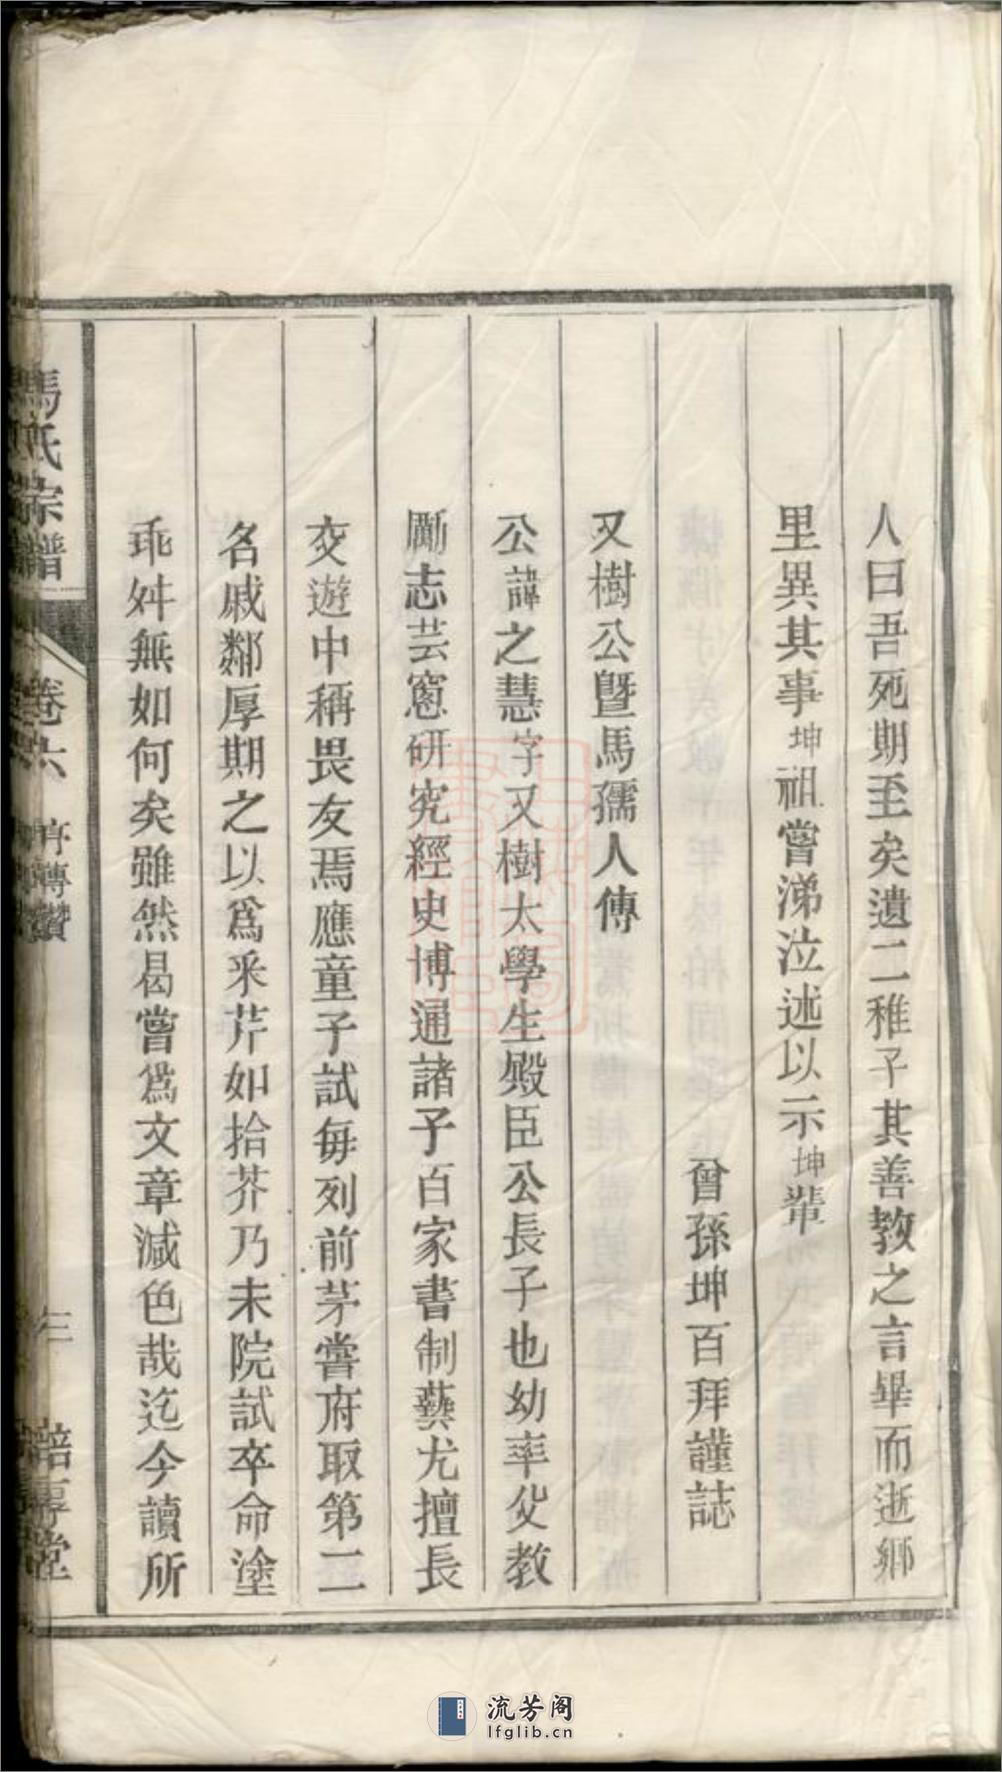 人曰吾死期至矣遺二稚子其善教之言畢而逝鄉
里異其事坤祖嘗涕泣述以示坤輩
曾孫坤百拜謹誌
又樹公暨馬孺人傳
公諱之慧字又樹太學生殿臣公長子也幼率父教
勵志芸窓研究經史博通諸子百家書制藝尤擅長
交遊中稱畏友焉應童子試每列前茅嘗府取第二
名戚鄰厚期之以爲采芹如拾芥乃未院試卒命塗
乖舛無如何矣雖然曷嘗爲文章減色哉迄今讀所
馬氏宗譜
卷六 序傳贊
三
流芳阁
lfglib.cn